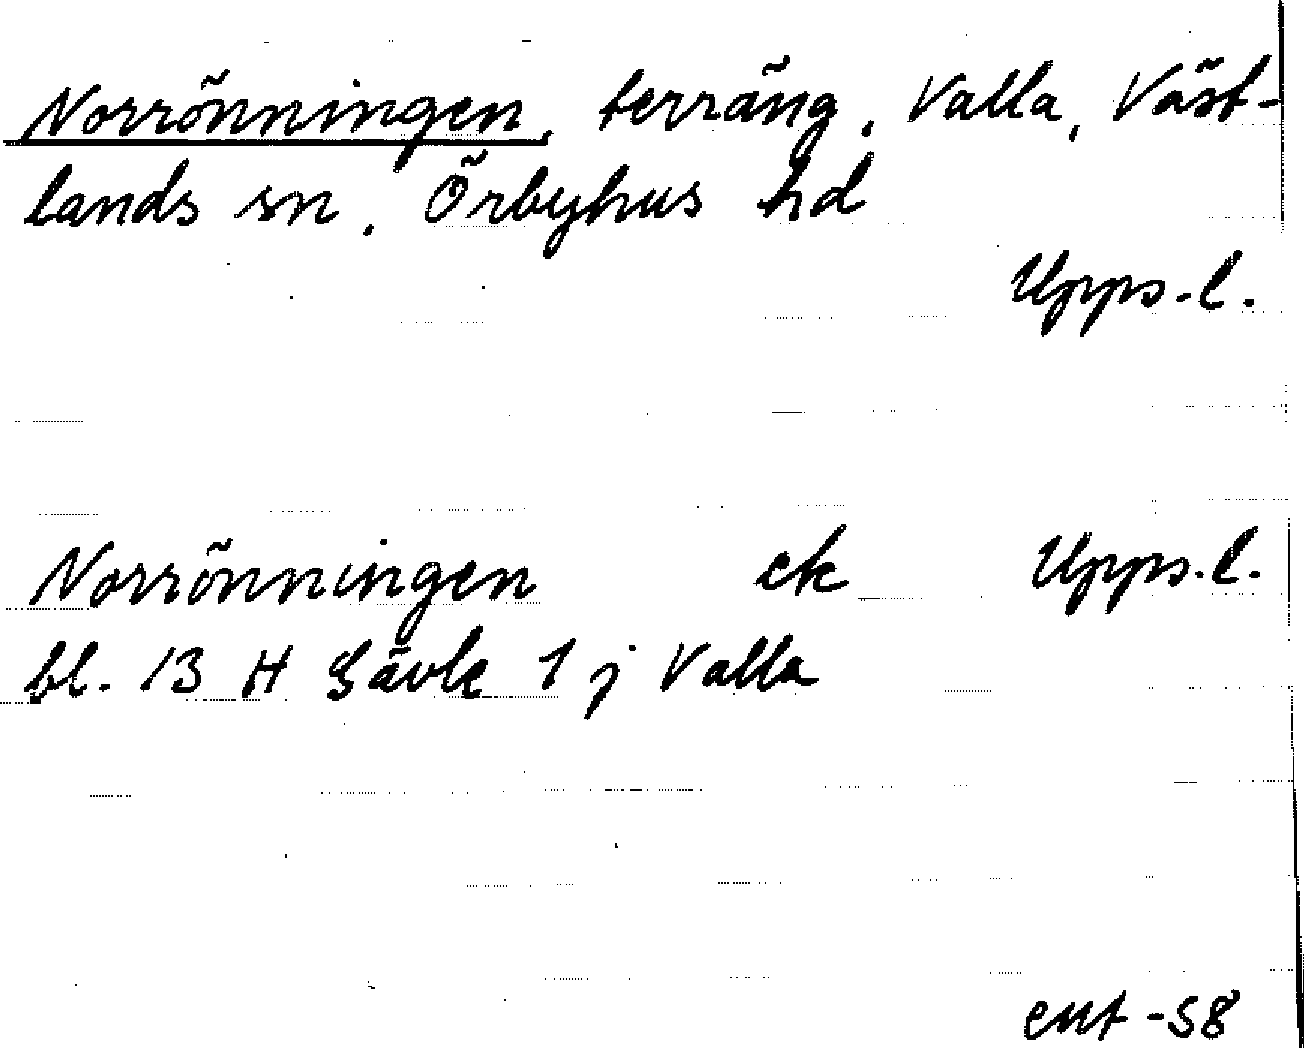 Norrönningen, terräng, Valla, Väst-
lands sn, Örbyhus hd
Upps.l.
Norrönningen ek Upps.l.
bl. 13 H Gävle 1 j Valla
-58